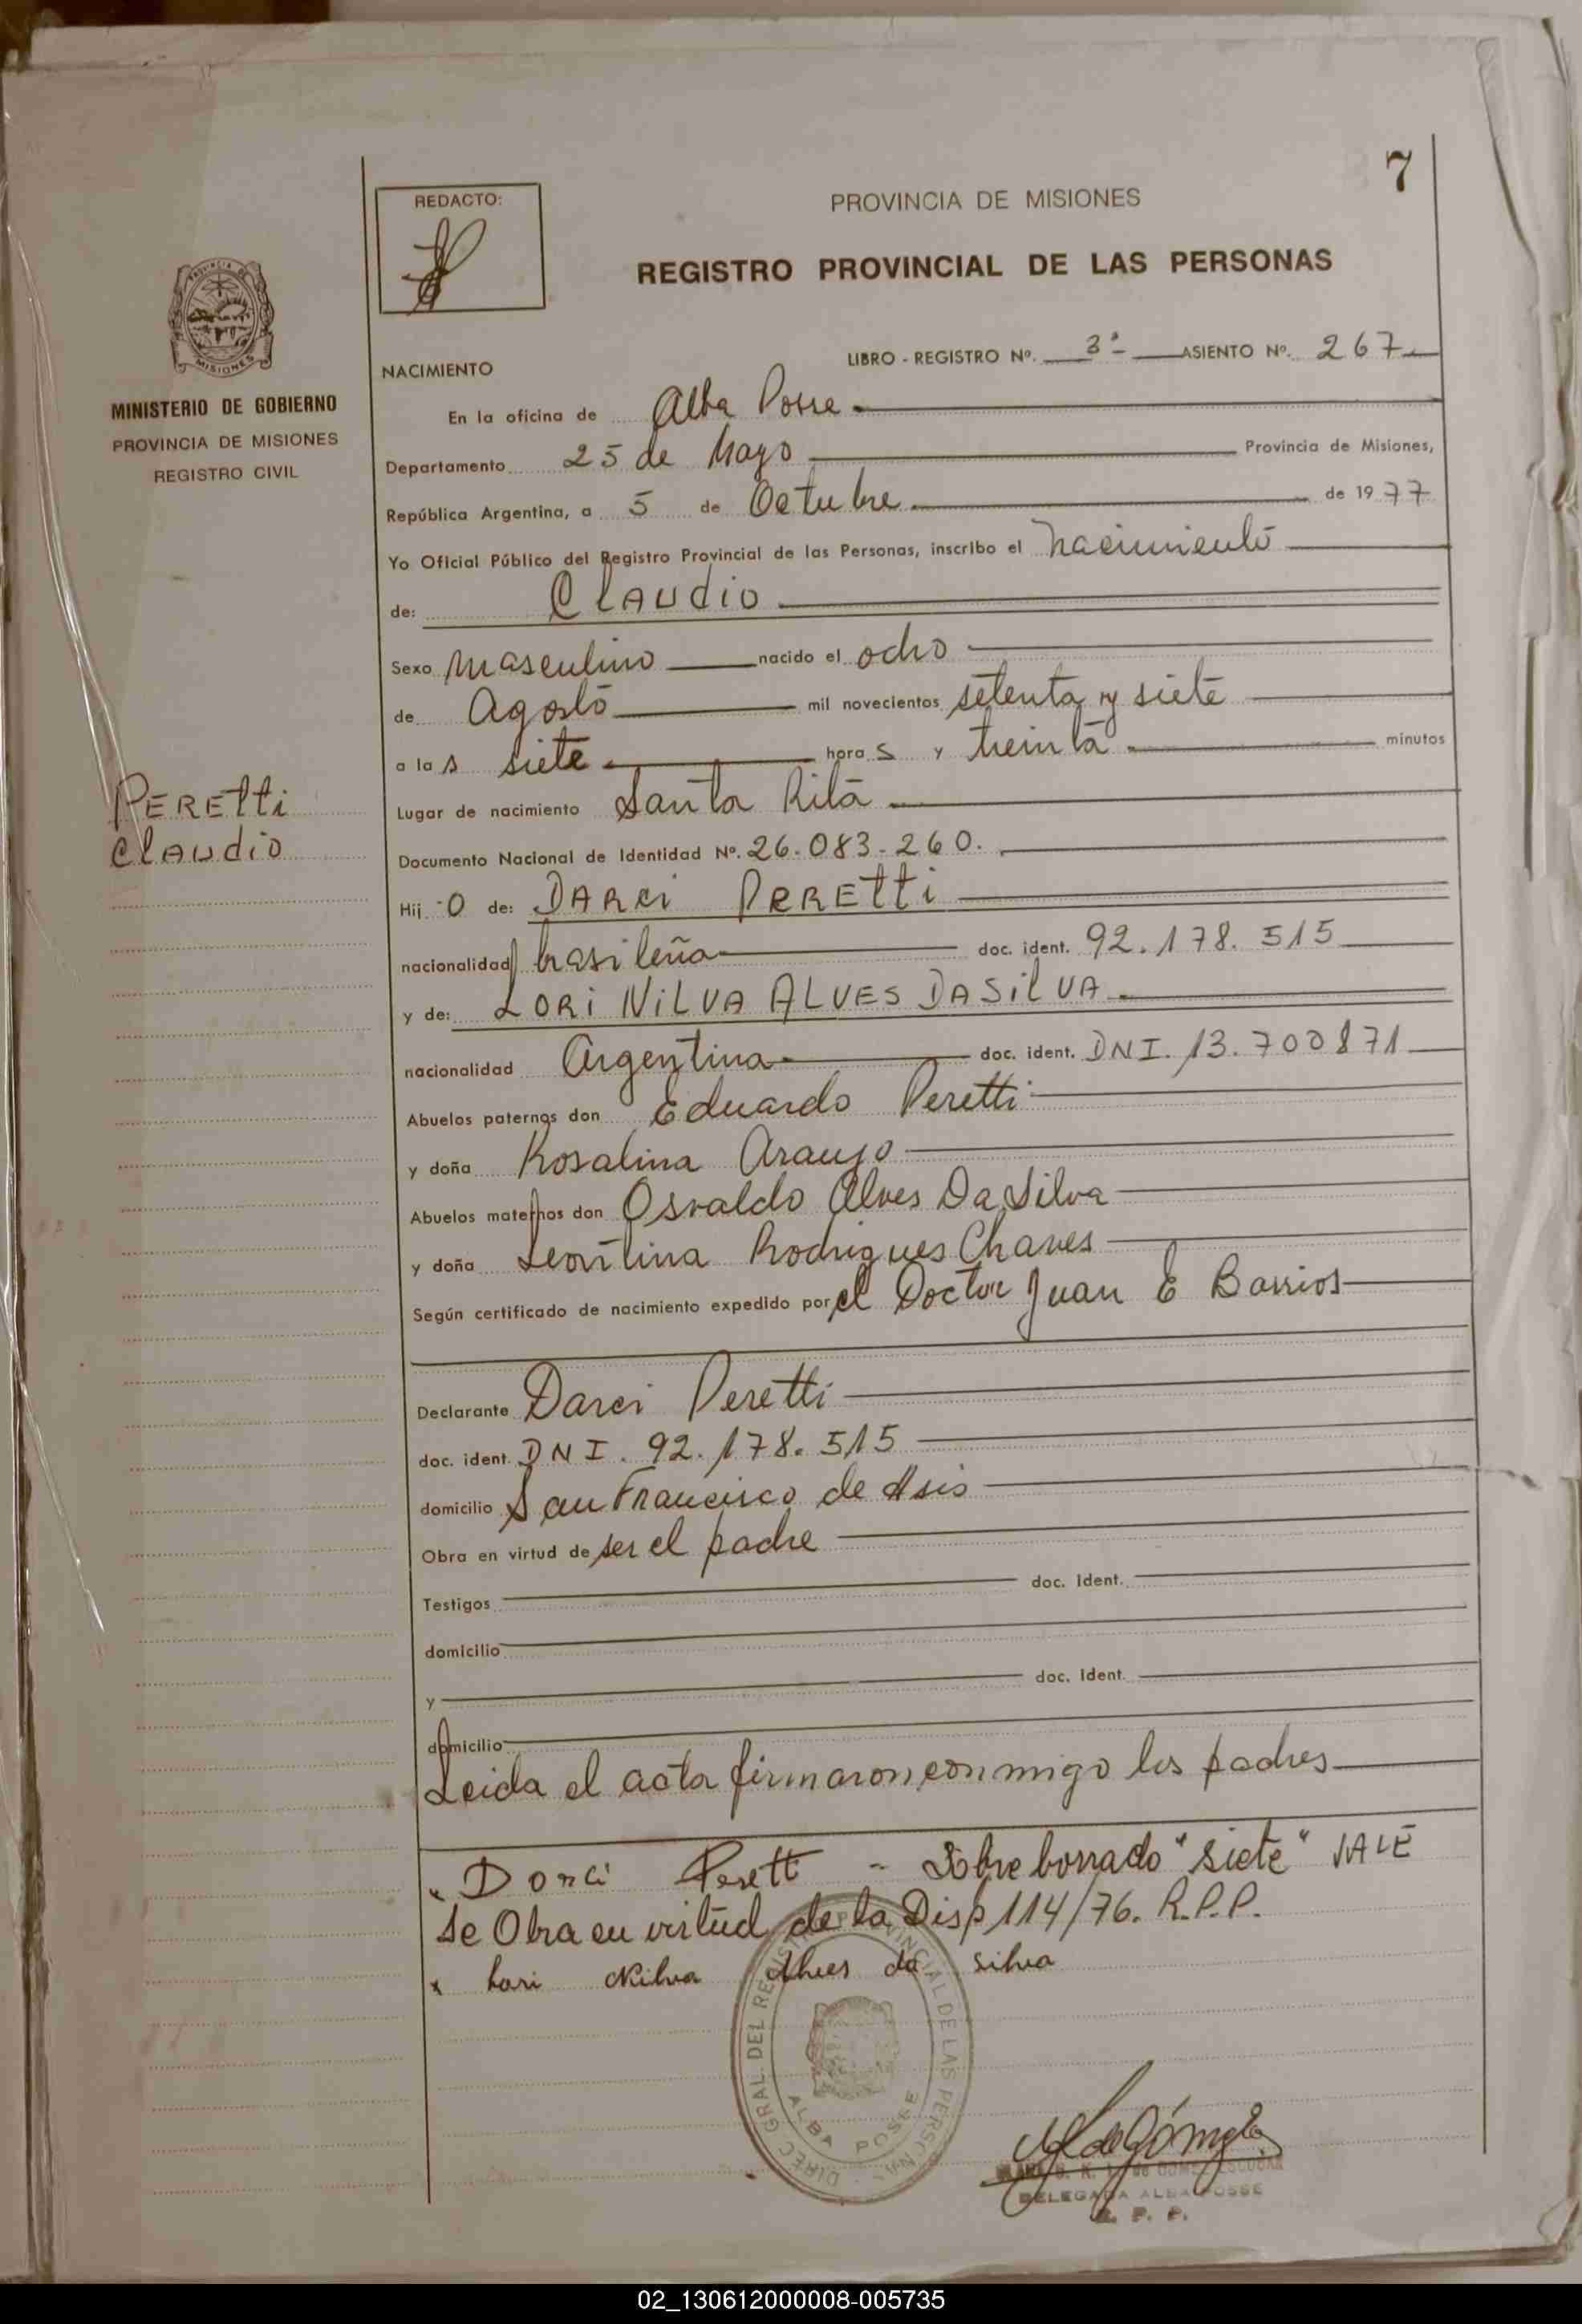 7
REDACTO:
PROVINCIA DE MISIONES
REGISTRO PROVINCIAL DE LAS PERSONAS
PROVINCIA DE
MISIONES
MINISTERIO DE GOBIERNO
PROVINCIA DE MISIONES
REGISTRO CIVIL
LIBRO - REGISTRO Nº. 3ª ASIENTO Nº. 267
NACIMIENTO
En la oficina de Alba Posse
Departamento 25 de Mayo Provincia de Misiones,
República Argentina, a 5 de Octubre de 1977
Yo Oficial Público del Registro Provincial de las Personas, inscribo el nacimiento
de: CLAUdio
Sexo masculino nacido el ocho
de Agosto mil novecientos setenta y siete
a las siete horas y treinta minutos
PEREtti
ClAUdio
Lugar de nacimiento Santa Rita
Documento Nacional de Identidad Nº. 26.083.260.
Hijo de: DARci PEREtti
nacionalidad brasileña doc. ident. 92.178.515
y de: LORi NiLVA ALVES DASiLVA
nacionalidad Argentina doc. ident. DNI. 13.700871
Abuelos paternos don Eduardo Peretti
y doña Rosalina Araujo
Abuelos maternos don Osvaldo Alves Da Silva
y doña Leontina Rodrigues Chaves
Según certificado de nacimiento expedido por el Doctor Juan E Barrios
Declarante Darci Peretti
doc. ident. DNI. 92.178.515
domicilio San Francisco de Asis
Obra en virtud de ser el padre
Testigos doc. Ident.
domicilio
y doc. Ident.
domicilio
Leida el acta firmaron conmigo los padres
Darci Perett - Sobre borrado "siete" VALE
Se Obra en virtud de la Disp 114/76. R.P.P.
x Lori Nilva Alves da silva
DIREC. GRAL. DEL REGISTRO PROVINCIAL DE LAS PERSONAS
ALBA POSSE
de Gómez
DELEGADA ALBA POSSE
R. P. P.
02_130612000008-005735